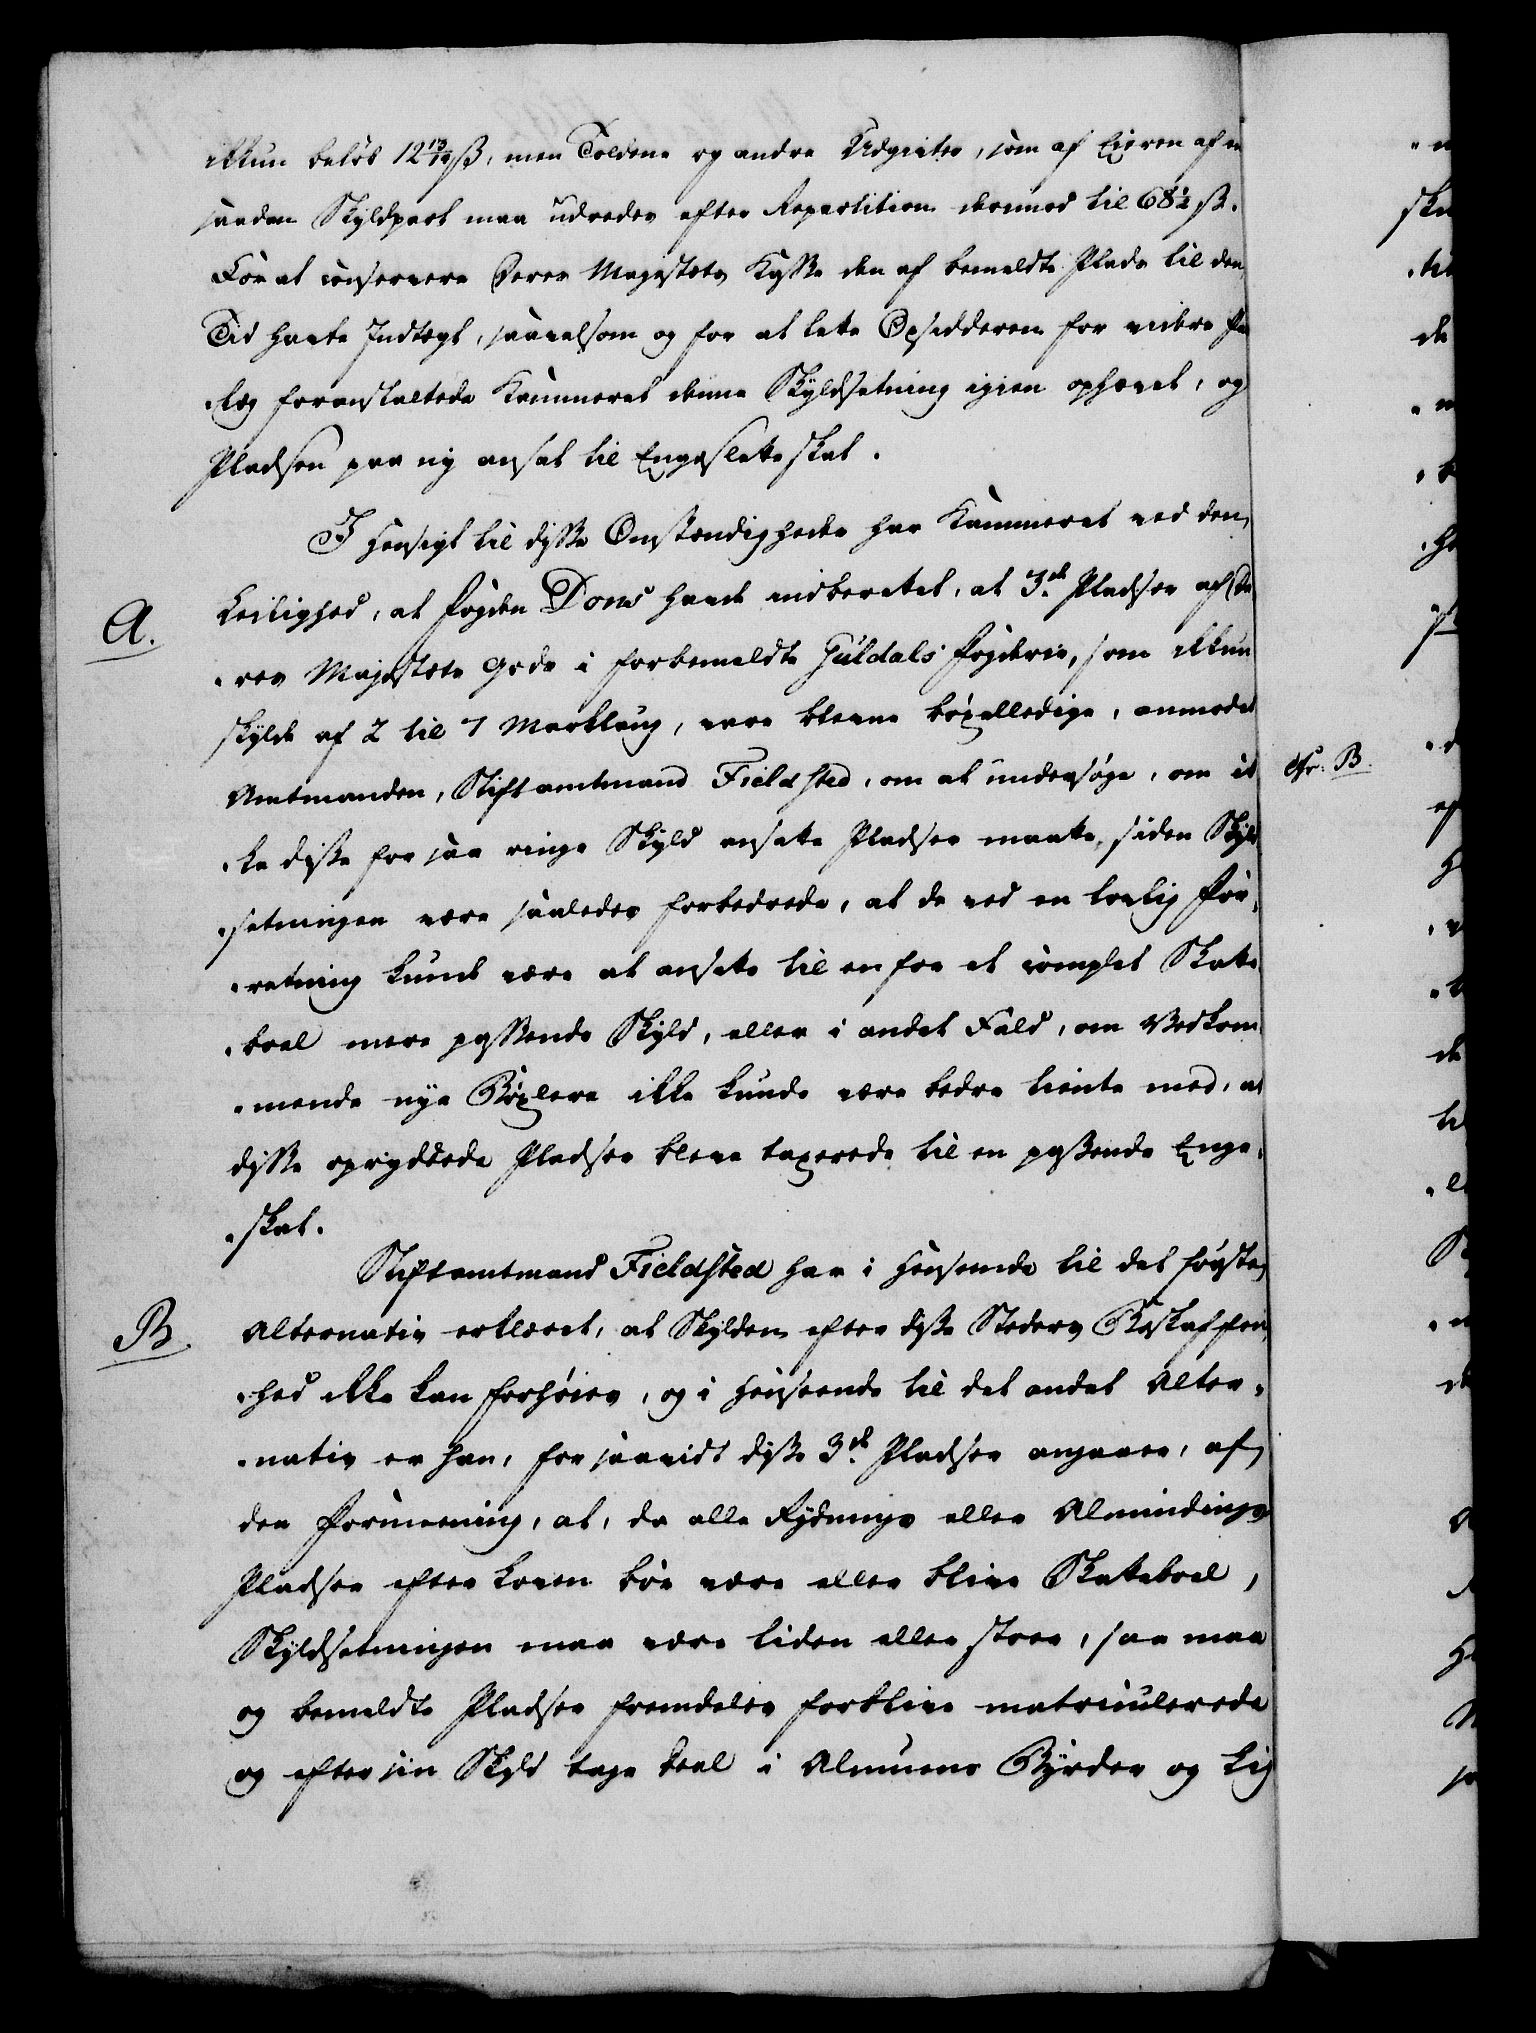 ikkun beløb 12 13/19 ß, men Tolden og andre Udgivter, som af Eieren af en
saadan Skyldpart maa udredes efter Repartition derimod til 68½ ß.
For at conservere Deres Majestæts Kasse den af bemeldte Plads til den
Tid havte Indtægt, saavelsom og for at lette Opsidderen for videre Paa¬
„læg foranstaltede Kammeret denne Skyldsetning igien ophævet, og
Pladsen paa ny ansat til Engesletteskat.
I Hensigt til disse Omstændigheder har Kammeret ved den
A.
Leilighed, at Fogden Dons havde indberettet, at 3de Pladser af De¬
„res Majestæts Gods i forbemeldte Guldals Fogderie, som ikkun
skylde af 2 til 7 Marklaug, vare blevne bøxelledige, anmodet
Amtmanden, Stiftamtmand Fieldsted, om at undersøge, om ik¬
„ke disse for saa ringe Skyld ansatte Pladser maatte, siden Skyld
„setningen være saaledes forbedrede, at de ved en lovlig For¬
„retning kunde være at ansette til en for et complet Skatte
„boel mere passende Skyld, eller i andet Fald, om Vedkom¬
„mende nye Bøxlere ikke kunde være bedre tiente med, at
disse opryddede Pladser bleve taxerede til en passende Enge¬
„skat.
Stiftamtmand Fieldsted har i Henseende til det første
B.
Alternativ erklæret, at Skylden efter disse Steders Beskaffen
„hed ikke kan forhøies, og i Henseende til det andet Alter¬
„nativ er han, for saavidt disse 3de Pladser angaaer, af
den Formeening, at, da alle Rydnings eller Almindings
Pladser efter Loven bør være eller blive Skatteboel,
Skyldsetningen maa være liden eller stoer, saa maa
og bemeldte Pladser fremdeles forblive matriculerede
og efter sin Skyld tage Deel i Almuens Byrder og lig
cfr. B.